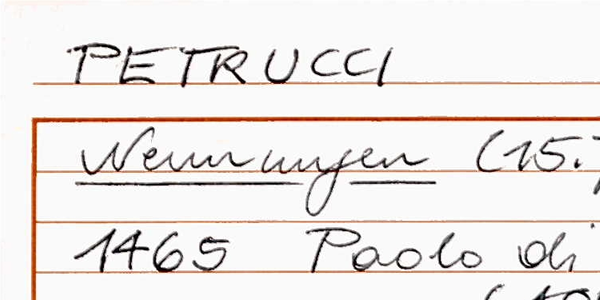 PETRUCCI
Nennungen (15.
1465 Paolo di